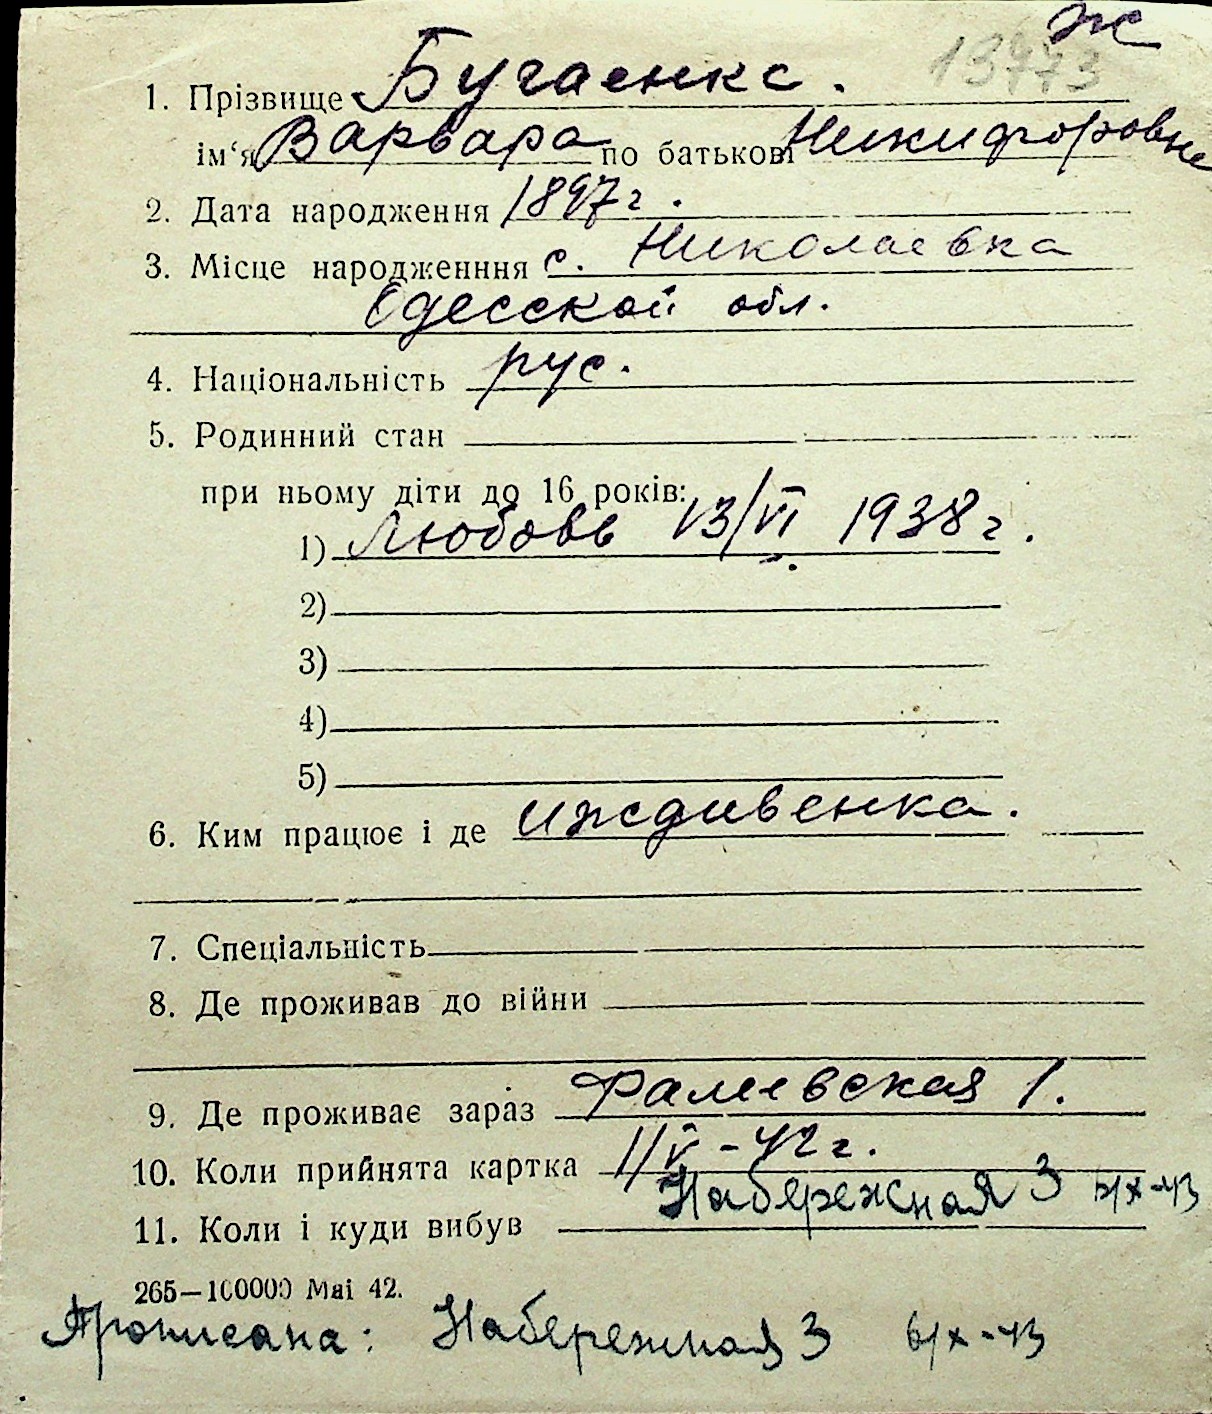 ж
13773
1. Прізвище Бугаенко.
ім‘я Варвара по батькові Никифоровне
2. Дата народження 1897 г.
3. Місце народженння с. Николаевка
Одесской обл.
4. Національність рус.
5. Родинний стан
при ньому діти до 16 років:
1) Любовь 13/VI 1938 г.
2)
3)
4)
5)
6. Ким працює і де иждивенка.
7. Спеціальність
8. Де проживав до війни
9. Де проживає зараз Фалеевская 1.
10. Коли прийнята картка 1/V-42 г.
Набережная 3 6/X-43
11. Коли і куди вибув
265—100000 Маі 42.
Прописана: Набережная 3 6/X-43